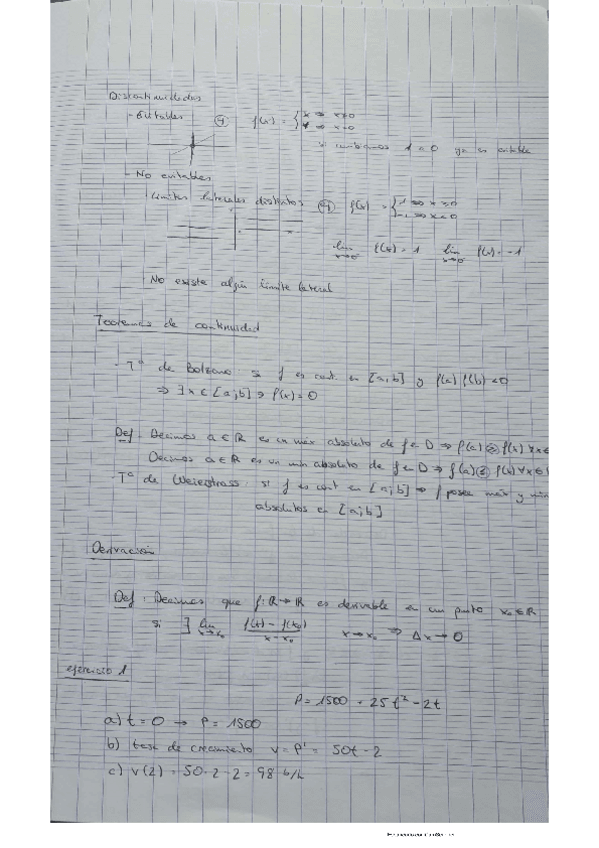 Discontinuidades
- Evitables f(x) = { x ⇒ x≠0
1 ⇒ x=0
si cambiamos 1 a 0 ya es evitable
- No evitables
Límites laterales distintos f(x) = { 1 ⇒ x ≥ 0
-1 ⇒ x < 0
lim f(x) = 1 lim f(x) = -1
No existe algún límite lateral
Teoremas de continuidad
- Tª de Bolzano: si f es cont. en [a,b] y f(a) f(b) < 0
⇒ ∃ x ∈ [a;b] ∋ f(x) = 0
Def: Decimos a ∈ ℝ es un max absoluto de f en D ⇒ f(a) ≥ f(x) ∀x ∈
Decimos a ∈ ℝ es un min absoluto de f en D ⇒ f(a) ≤ f(x) ∀x ∈
- Tª de Weierstrass: si f es cont en [a;b] ⇒ f posee max y min
absolutos en [a;b]
Derivación
Def: Decimos que f: ℝ → ℝ es derivable en un punto x₀ ∈ ℝ
si ∃ lim x→x₀ f(x) - f(x₀) / x - x₀ x → x₀ ⇒ Δx → 0
ejercicio 1
P = 1500 + 25t² - 2t
a) t = 0 → P = 1500
b) tasa de crecimiento v = P' = 50t - 2
c) v(2) = 50·2 - 2 = 98 b/h